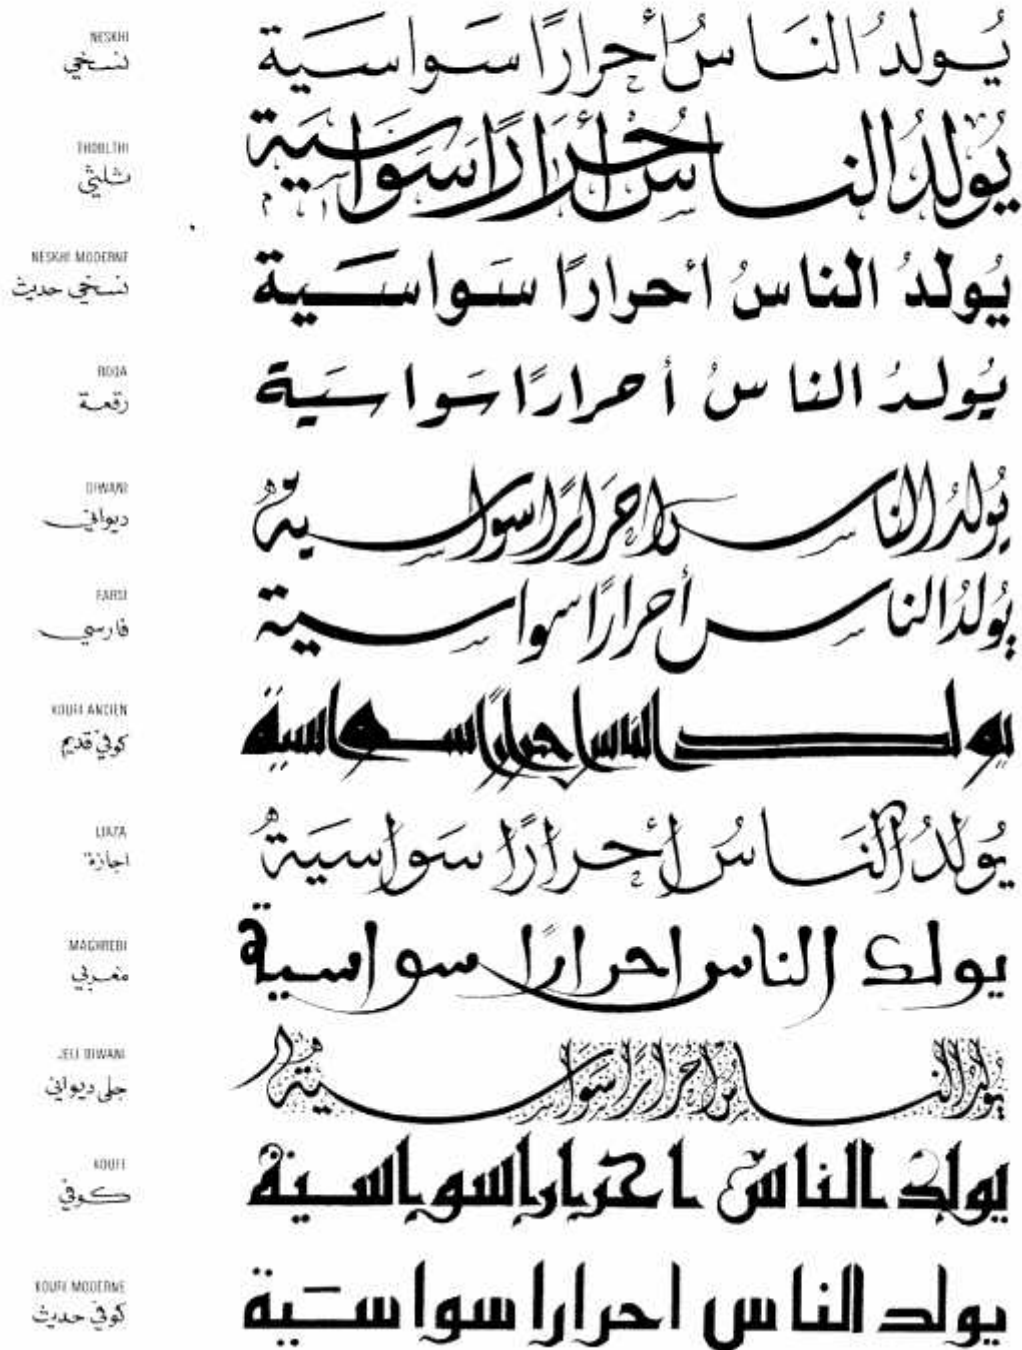 NESKHI
نسخي
يُولدُ النَاسُ أحرارًا سَواسَية
THOULTHI
ثلثي
يُولدُ الناسُ أحرارًا سَواسَية
NESKHI MODERNE
نسخي حديث
يُولدُ الناسُ أحرارًا سَواسَية
ROQA
رقعة
يُولدُ الناسُ أحرارًا سَواسَية
DIWANI
ديواني
يُولدُ الناس احرارًا سواسية
FARSI
فارسي
يُولدُ الناس أحرارًا سواسية
KOUFI ANCIEN
كوفي قديم
يولد الناس احرارًا سواسية
IJAZA
اجازة
يُولدُ النَاسُ أحرارًا سَواسَيةُ
MAGHREBI
مغربي
يولد الناس احرارًا سواسية
JELI DIWANI
جلي ديواني
يُولدُ الناسُ احرارًا سَواسيةُ
KOUFI
كوفي
يولد الناس احرارا سواسية
KOUFI MODERNE
كوفي حديث
يولد الناس احرارا سواسَية